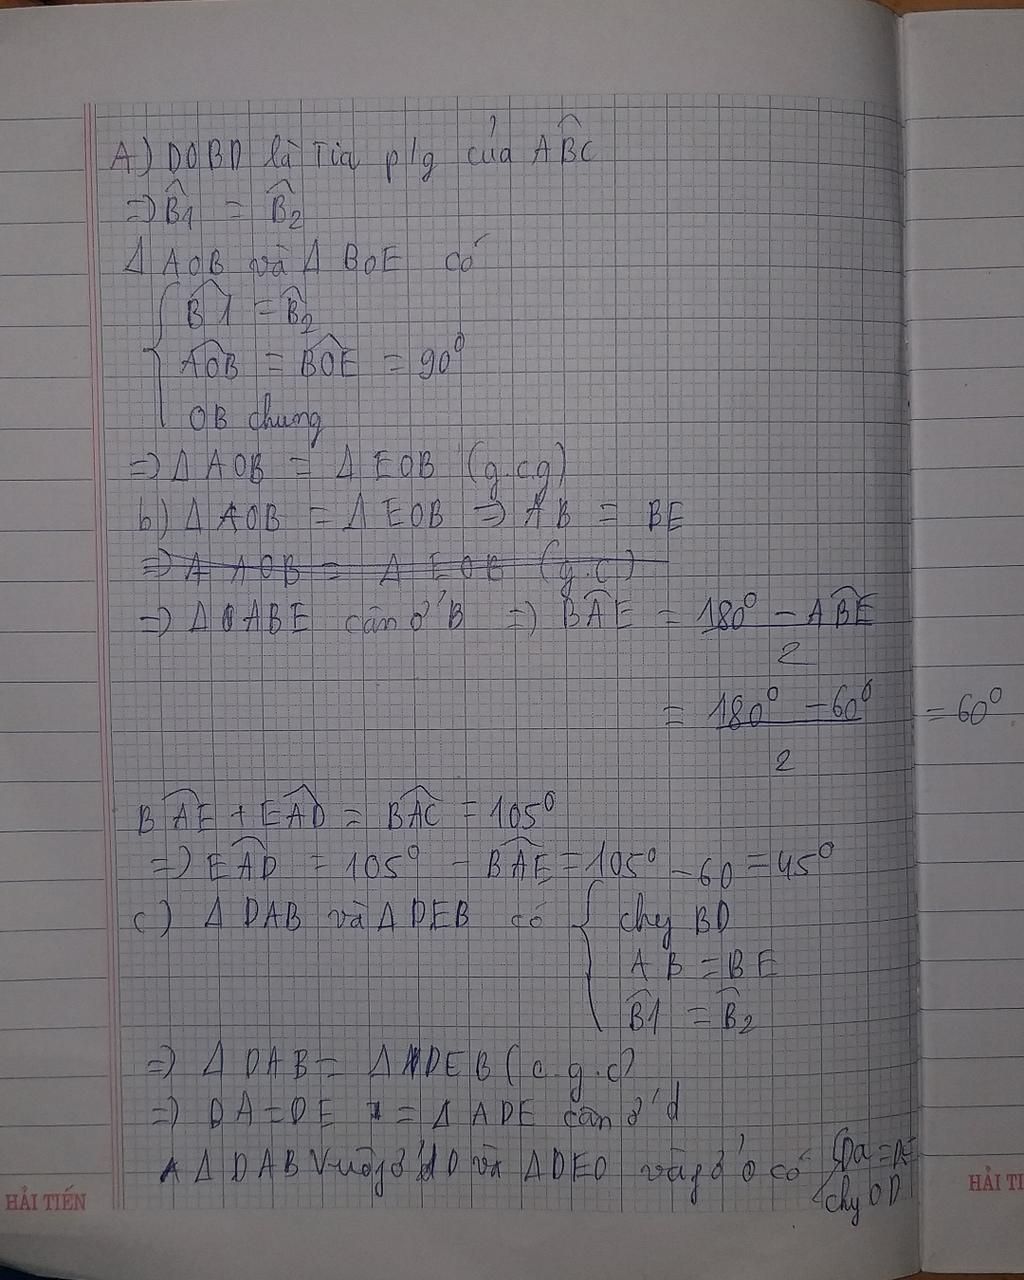 A) DOBD là Tia p/g của AB̂C
=> B̂1 = B̂2
Δ AOB và Δ BOE có
B̂1 = B̂2
AÔB = BÔE = 90⁰
OB chung
=> Δ AOB = Δ EOB (g.c.g)
b) Δ AOB = Δ EOB => AB = BE
=> Δ AOB = Δ EOB (g.c)
=> Δ ABE cân ở B => BÂE = 180⁰ - AB̂E / 2
= 180⁰ - 60⁰ / 2 = 60⁰
BÂE + EÂD = BÂC = 105⁰
=> EÂD = 105⁰ - BÂE = 105⁰ - 60 = 45⁰
c) Δ DAB và Δ DEB có { chg BD
AB = BE
B̂1 = B̂2
=> Δ DAB = Δ DEB (c.g.c)
=> DA = DE = Δ ADE cân ở d
Δ DAB vuôg ở D và ΔDEO vuôg ở O có { Da = DE
chg OD
HẢI TIẾN
HẢI TI